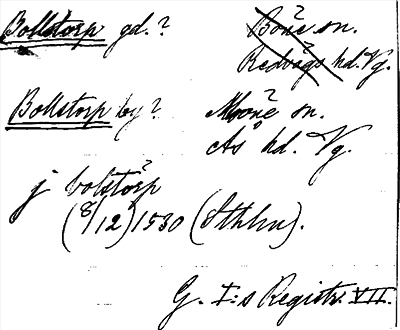 Bollstorp gd.? Böne sn.
Redvägs hd. Vg.
Bollstorp by? Möne sn.
Ås hd. Vg.
j bolstorp
(8/12) 1530 (Sthlm).
G. I:s Registr. VII.